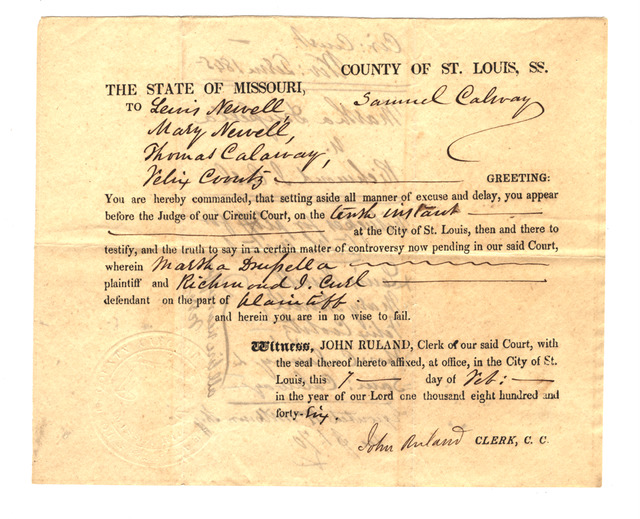 COUNTY OF ST. LOUIS, SS.
THE STATE OF MISSOURI,
TO Lewis Newell, Samuel Calway
Mary Newell,
Thomas Calaway,
Felix Coontz GREETING:
You are hereby commanded, that setting aside all manner of excuse and delay, you appear
before the Judge of our Circuit Court, on the tenth instant
at the City of St. Louis, then and there to
testify, and the truth to say in a certain matter of controversy now pending in our said Court,
wherein Martha Drusella
plaintiff and Richmond J. Curl
defendant on the part of plaintiff.
and herein you are in no wise to fail.
Witness, JOHN RULAND, Clerk of our said Court, with
the seal thereof hereto affixed, at office, in the City of St.
Louis, this 7 day of Feb:
in the year of our Lord one thousand eight hundred and
forty-six.
John Ruland CLERK, C. C.